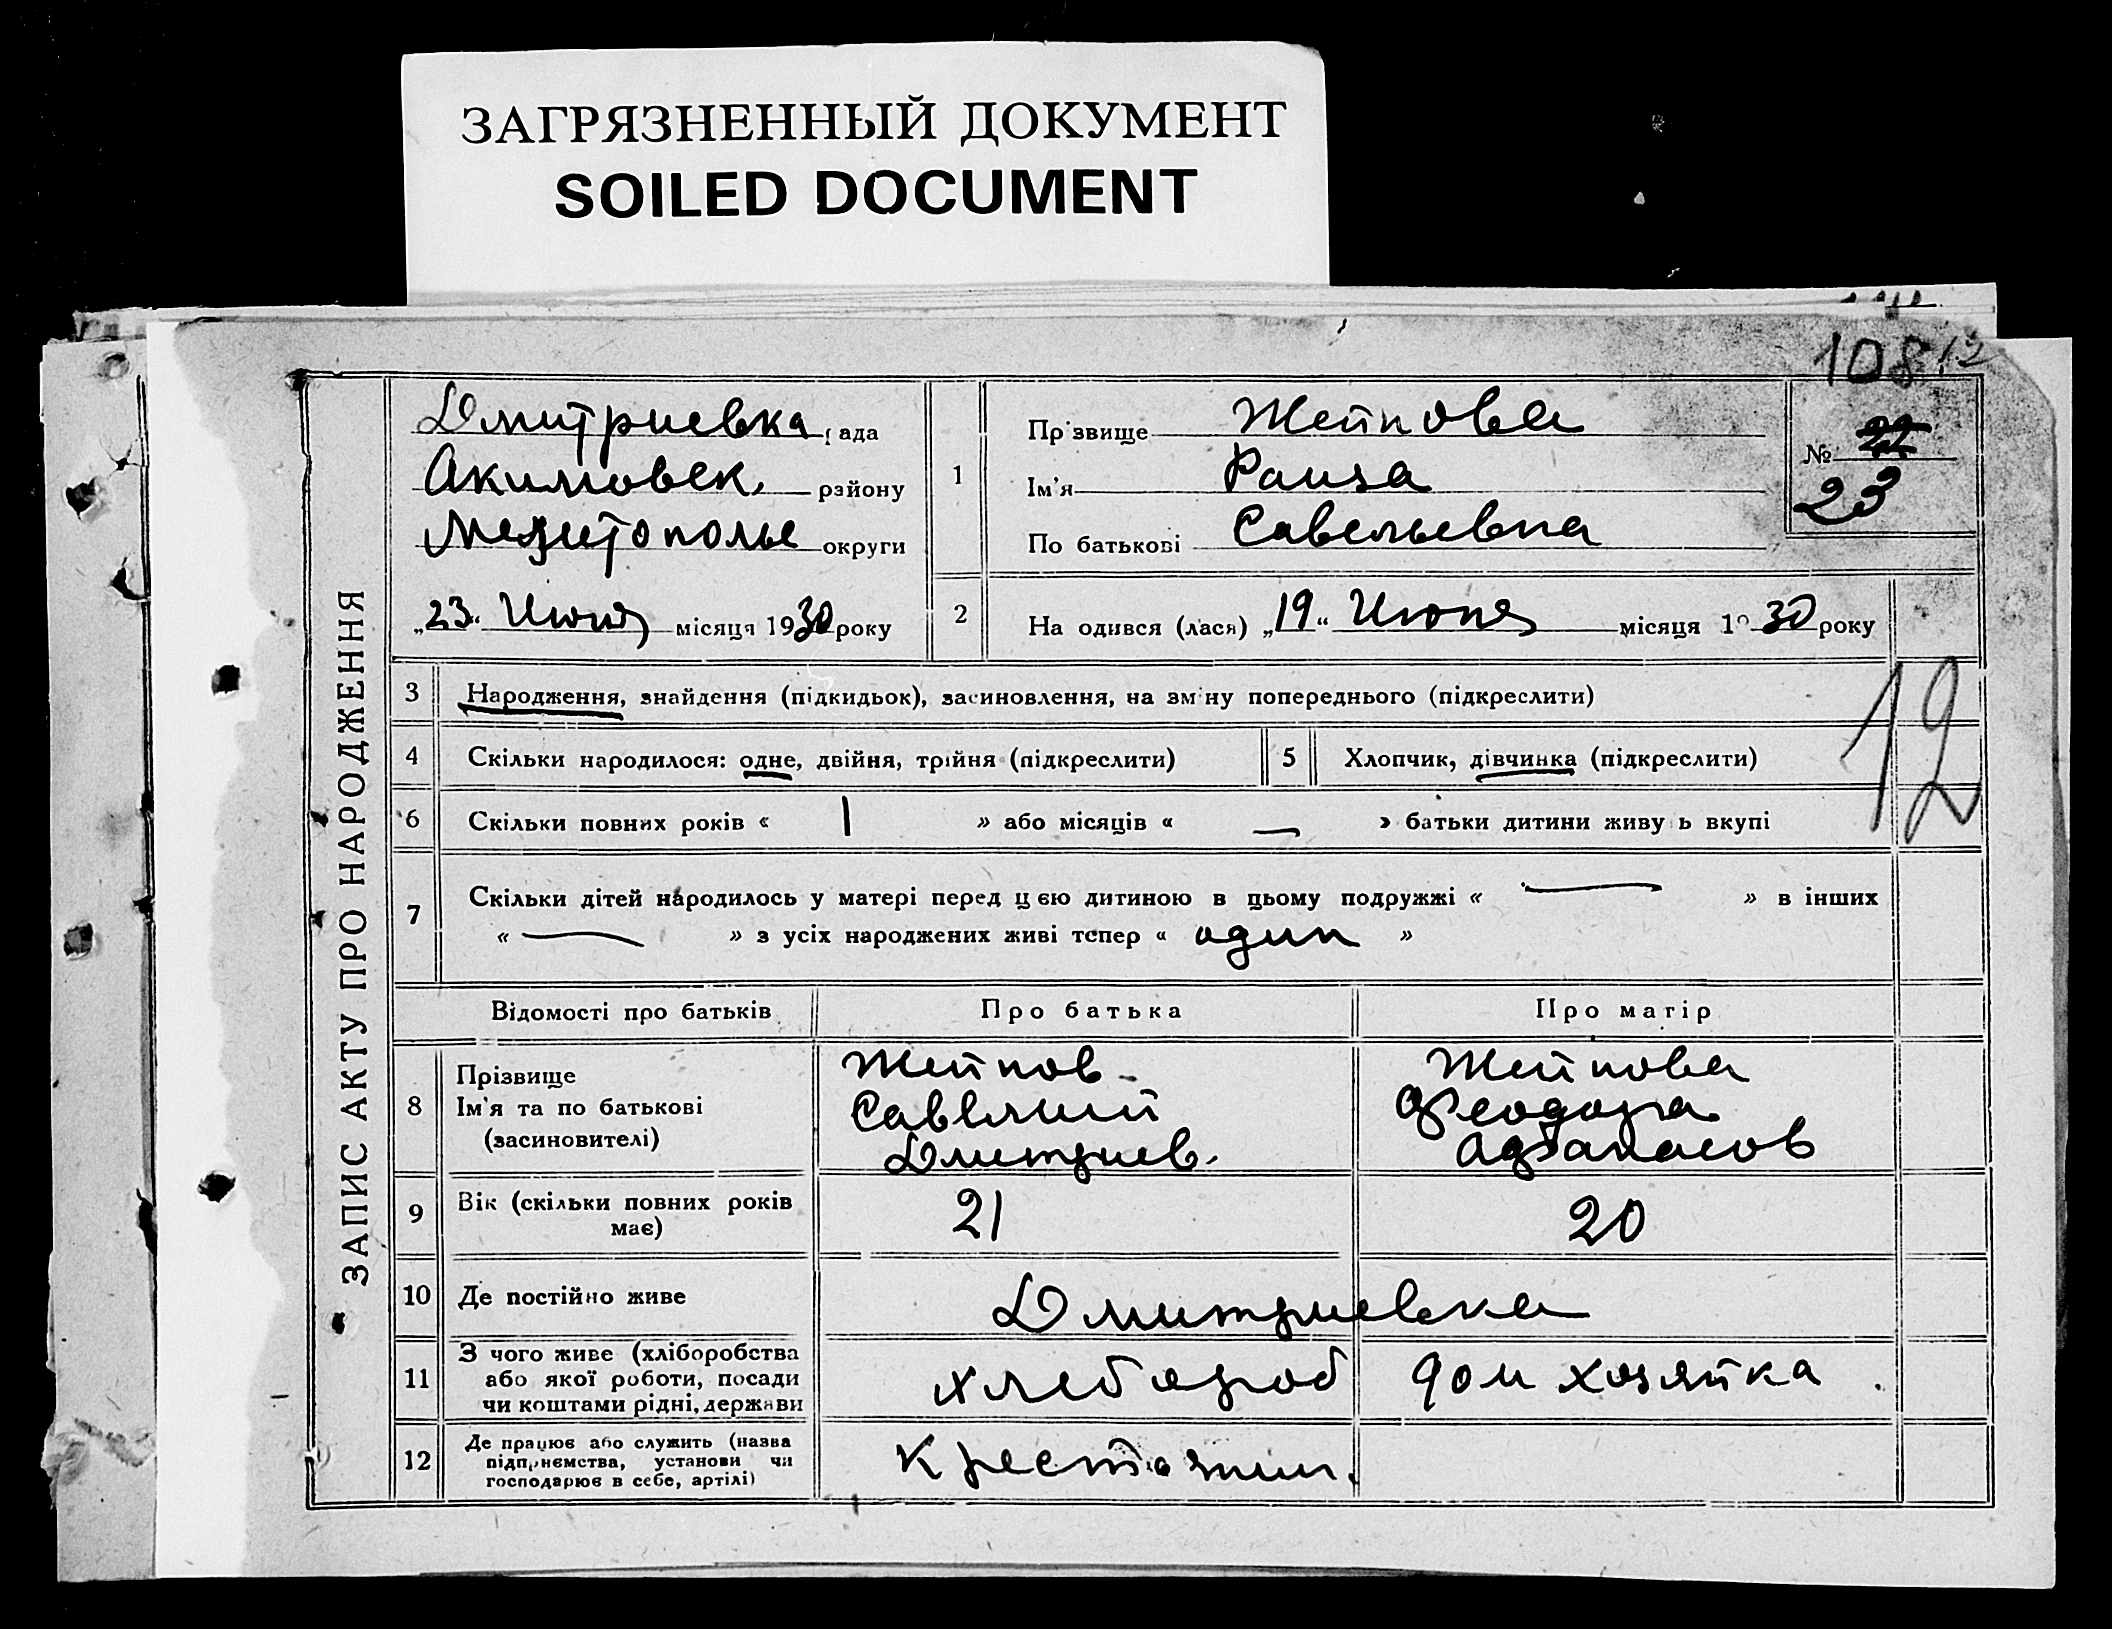 ЗАГРЯЗНЕННЫЙ ДОКУМЕНТ
SOILED DOCUMENT
108
12
ЗАПИС АКТУ ПРО НАРОДЖЕННЯ
Дмитриевка рада
Акимовск. району
Мелитополье округи
„23“ Июня місяця 1930 року
1
Прізвище Жейнова
Ім'я Раиса
По батькові Савельевна
№ 22
23
2
На одився (лася) „19“ Июня місяця 1930 року
3 Народження, знайдення (підкидьок), засиновлення, на зміну попереднього (підкреслити)
4 Скільки народилося: одне, двійня, трійня (підкреслити) 5 Хлопчик, дівчинка (підкреслити)
12
6 Скільки повних років « 1 » або місяців « — » батьки дитини живуть вкупі
7 Скільки дітей народилось у матері перед цією дитиною в цьому подружжі « — » в інших
« — » з усіх народжених живі тепер « один »
Відомості про батьків Про батька Про матір
8 Прізвище
Ім'я та по батькові
(засиновителі)
Жейнов
Савелий
Дмитриев.
Жейнова
Феодора
Афанасов
9 Вік (скільки повних років має) 21 20
10 Де постійно живе Дмитриевка
11 З чого живе (хліборобства
або якої роботи, посади
чи коштами рідні, держави
хлебороб дом хозяйка
12 Де працює або служить (назва
підприємства, установи чи
господарює в себе, артілі)
Крестьянин.